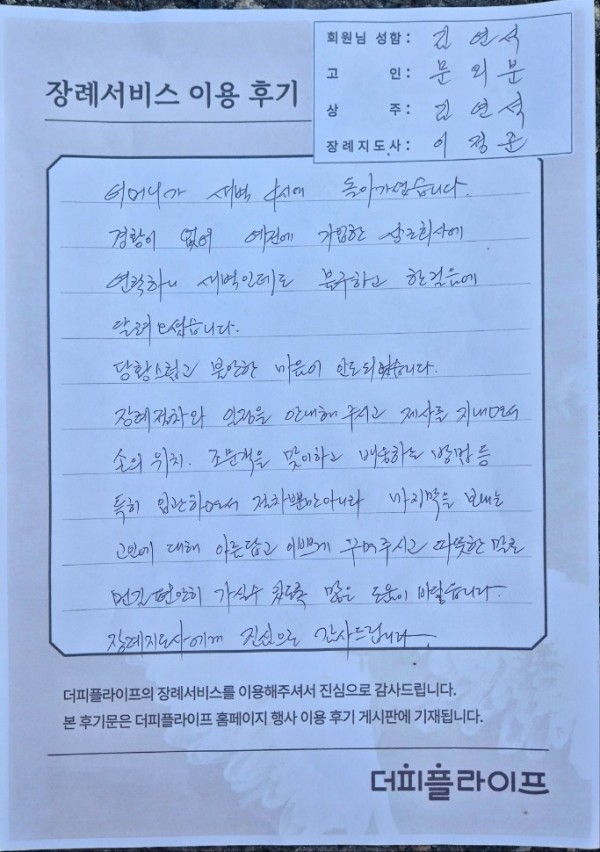 장례서비스 이용 후기
회원님 성함: 김연석
고 인: 문외분
상 주: 김연석
장례지도사: 이정준
어머니가 새벽 4시에 돌아가셨습니다.
경황이 없어 예전에 가입한 상조회사에
연락하니 새벽인데도 불구하고 한걸음에
달려오셨습니다.
당황스럽고 불안한 마음이 안도되었습니다.
장례절차와 일정을 안내해 주시고 제사를 지내면서
손의 위치. 조문객을 맞이하고 배웅하는 방법 등
특히 입관하면서 절차뿐만아니라 마지막을 보내는
고인에 대해 아름답고 이쁘게 꾸며주시고 따뜻한 말로
먼길 편안히 가실수 있도록 많은 도움이 바탕습니다.
장례지도사에게 진심으로 감사드립니다.
더피플라이프의 장례서비스를 이용해주셔서 진심으로 감사드립니다.
본 후기문은 더피플라이프 홈페이지 행사 이용 후기 게시판에 기재됩니다.
더피플라이프